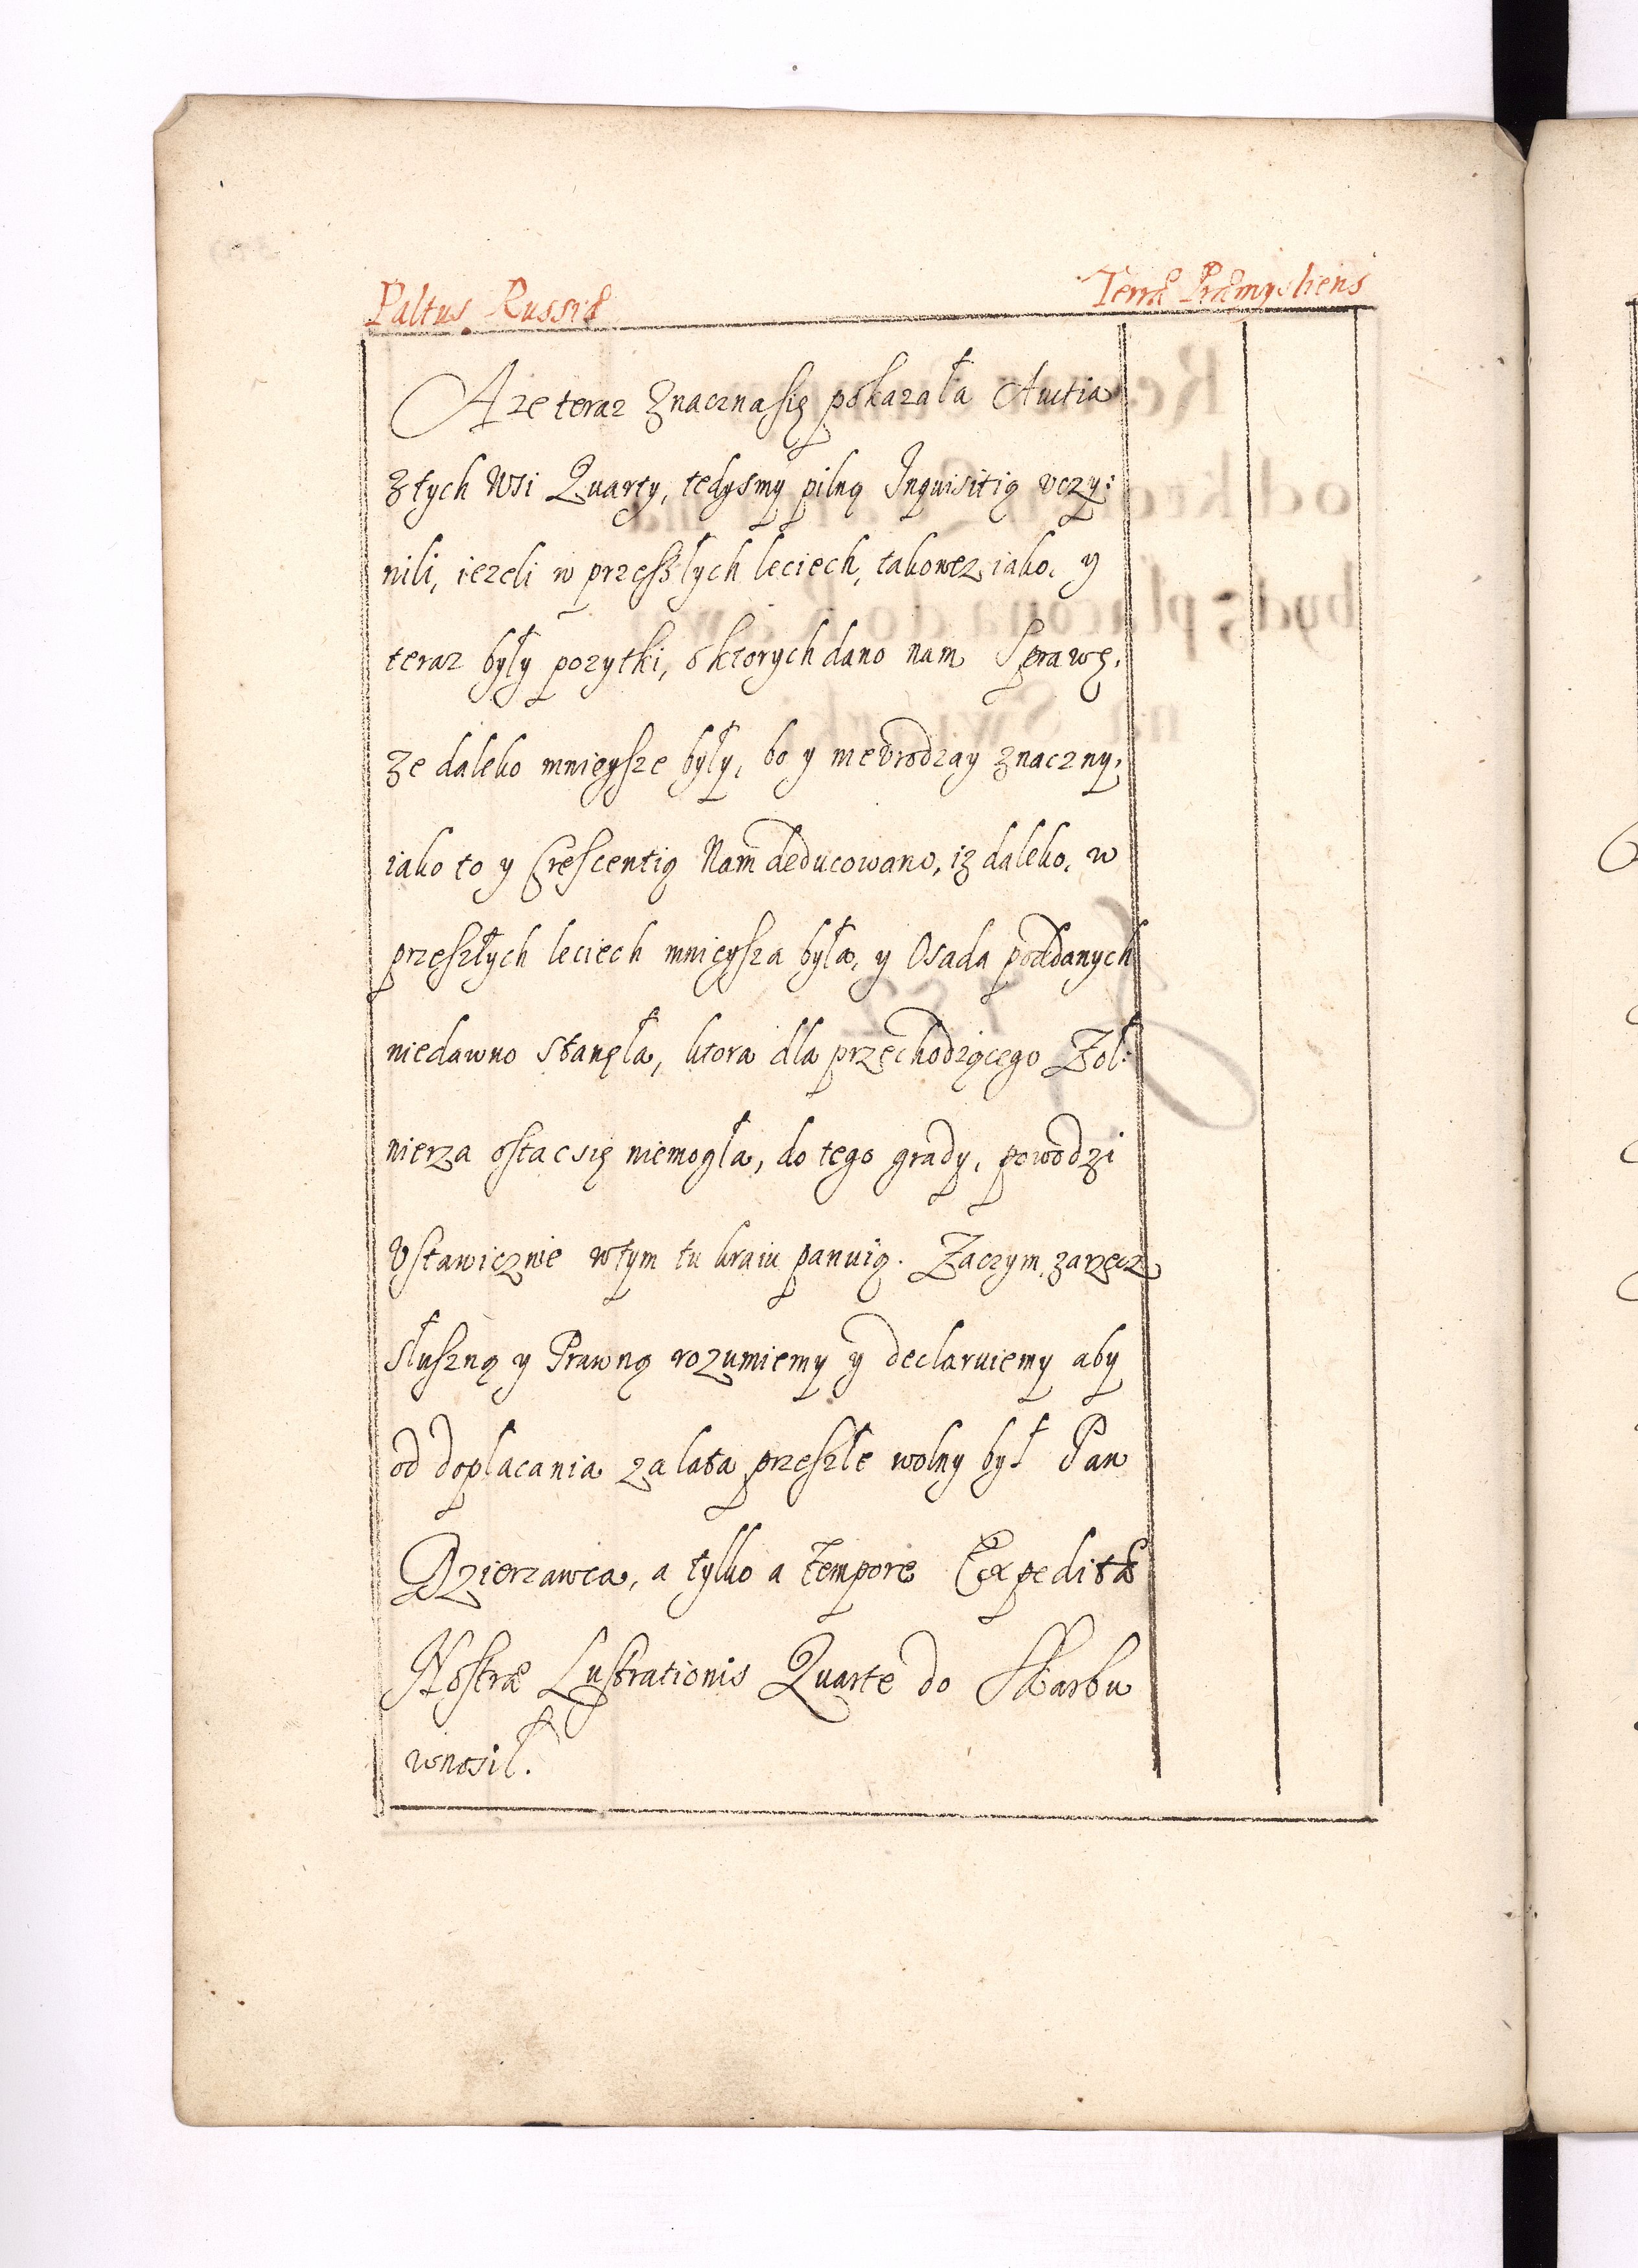 Paltus Russiæ
Terræ Præmysliens
A ze teraz znaczna się pokazała Auctia
z tych Wsi Quarty, tedysmy pilną Inquisitią uczy:
nili, iezeli w przeszłych leciech, takowez iako, y
teraz były pozytki, o ktorych dano nam Sprawę,
ze daleko mnieysze były, bo y nieurodzay znaczny,
iako to y Crescentią Nam deducowano, iz daleko, w
przeszłych leciech mnieysza była, y Osada poddanych
niedawno stanęła, ktora dla przechodzącego Zoł:
nierza ostac się niemogła, do tego grady, powodzi
Ustawicznie w tym tu kraiu panuią. Zaczym, za rzecz
słuszną y Prawną rozumiemy y declaruiemy aby
od dopłacania za lata przeszłe wolny był Pan
Dzierzawca, a tylko a tempore Expeditæ
Nostræ Lustrationis Quarte do Skarbu
wnosił.